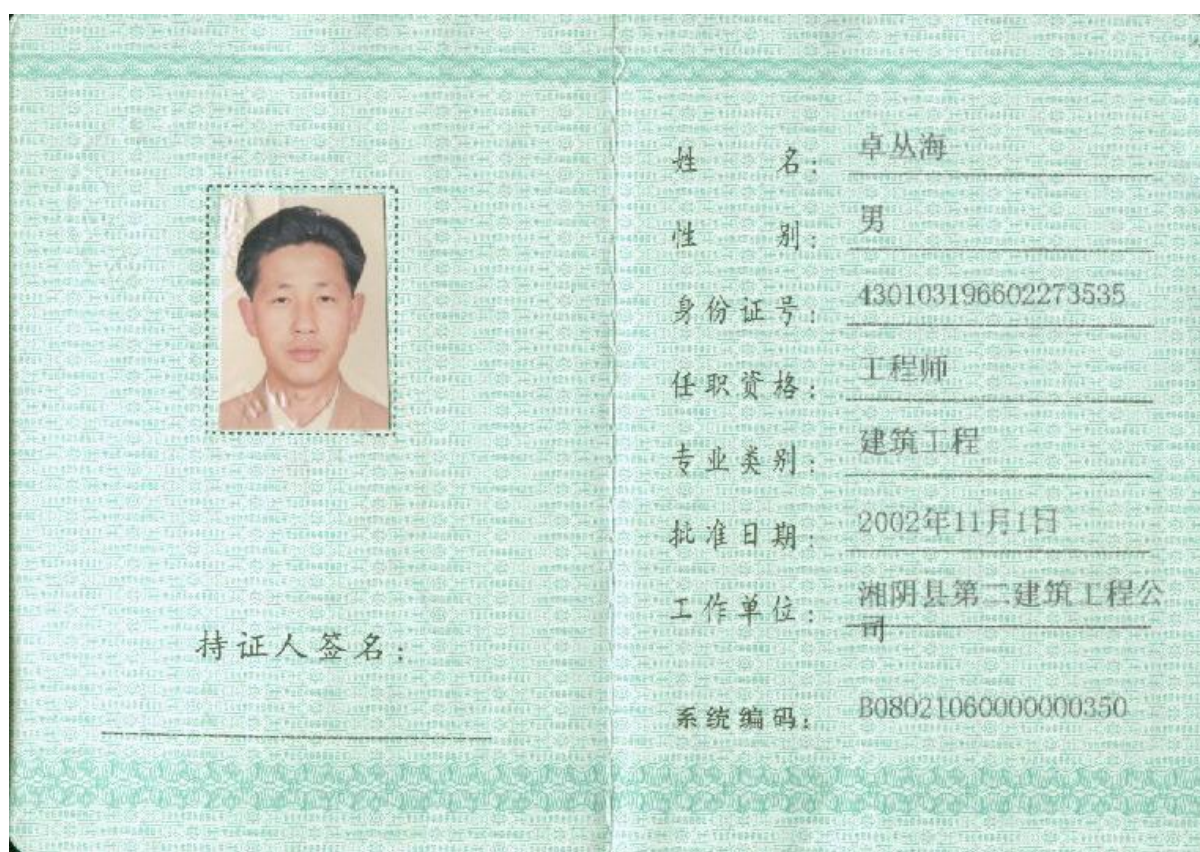 持证人签名:
姓名: 卓丛海
性别: 男
身份证号: 430103196602273535
任职资格: 工程师
专业类别: 建筑工程
批准日期: 2002年11月1日
工作单位: 湘阴县第二建筑工程公
司
系统编码: B08021060000000350